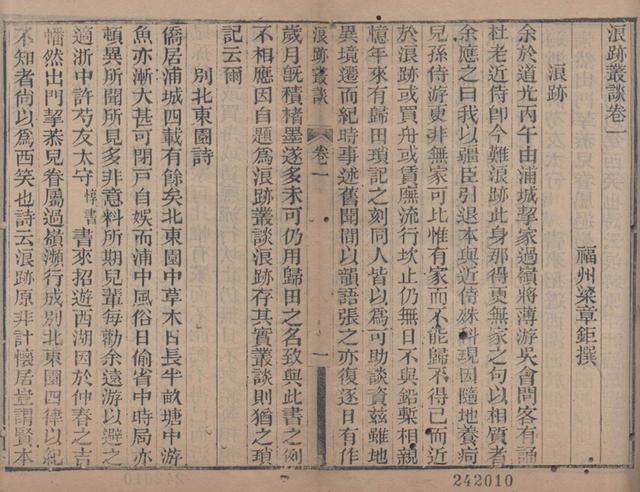 浪跡叢談卷一
福州梁章鉅撰
浪跡
余於道光丙午由浦城挈家過嶺將薄游吳會問客有誦
杜老近侍卽今難浪跡此身那得更無家之句以相質者
余應之曰我以疆臣引退本與近侍殊科現因隨地養疴
兒孫侍游更非無家可比惟有家而不能歸不得已而近
於浪跡或買舟或賃廡流行坎止仍無日不與鉛槧相親
憶年來有歸田瑣記之刻同人皆以爲可助談資茲雖地
異境遷而紀時事述舊聞間以韻語張之亦復逐日有作
浪跡叢談
卷一
一
歲月旣積楮墨遂多未可仍用歸田之名致與此書之例
不相應因自題爲浪跡叢談浪跡存其實叢談則猶之瑣
記云爾
別北東園詩
僑居浦城四載有餘矣北東園中草木日長半畝塘中游
魚亦漸大甚可閉戸自娱而浦中風俗日偷省中時局亦
頓異所聞所見多非意料所期兒輩每勸余遠游以避之
適浙中許芍友太守惇書書來招遊西湖因於仲春之吉
幡然出門挈恭兒眷屬過嶺瀕行成別北東園四律以紀
不知者尚以爲西笑也詩云浪跡原非計懷居豈謂賢本
242010